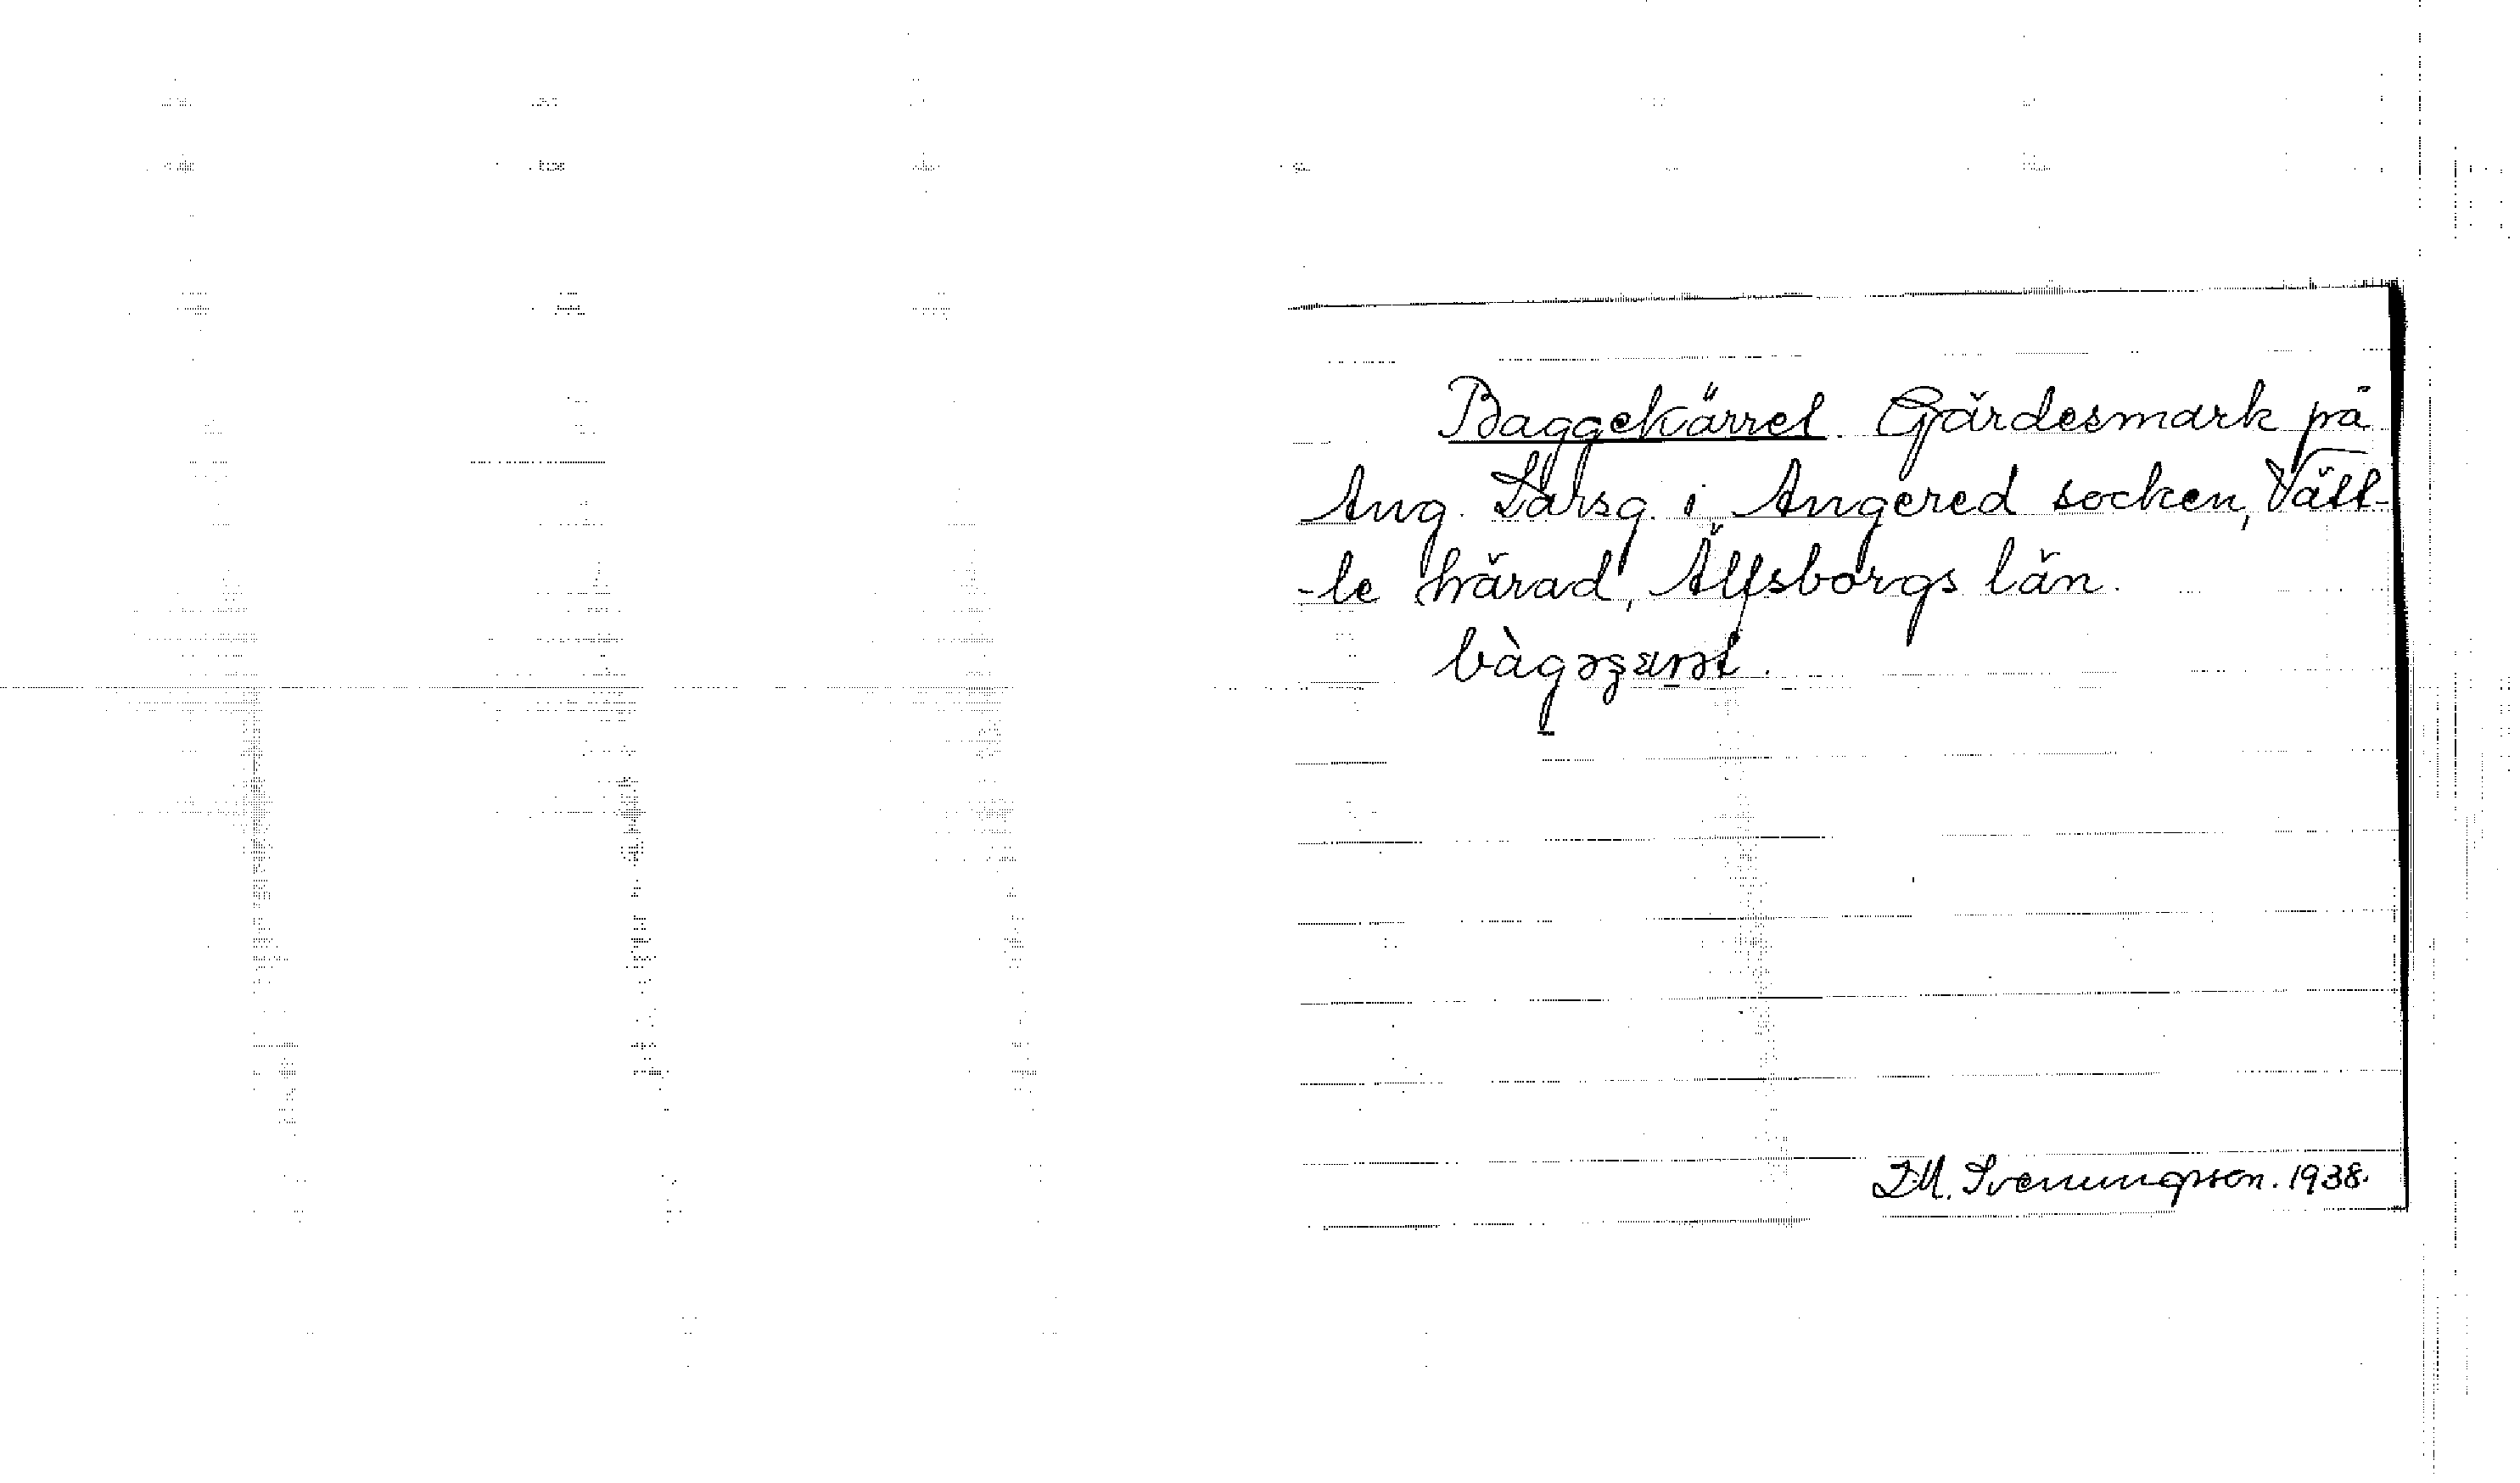 Baggekärret Gärdesmark på
Ang. Larsg. i Angered socken, Vätt-
-le härad, Älfsborgs län.
D.M. Svenungsson. 1938.